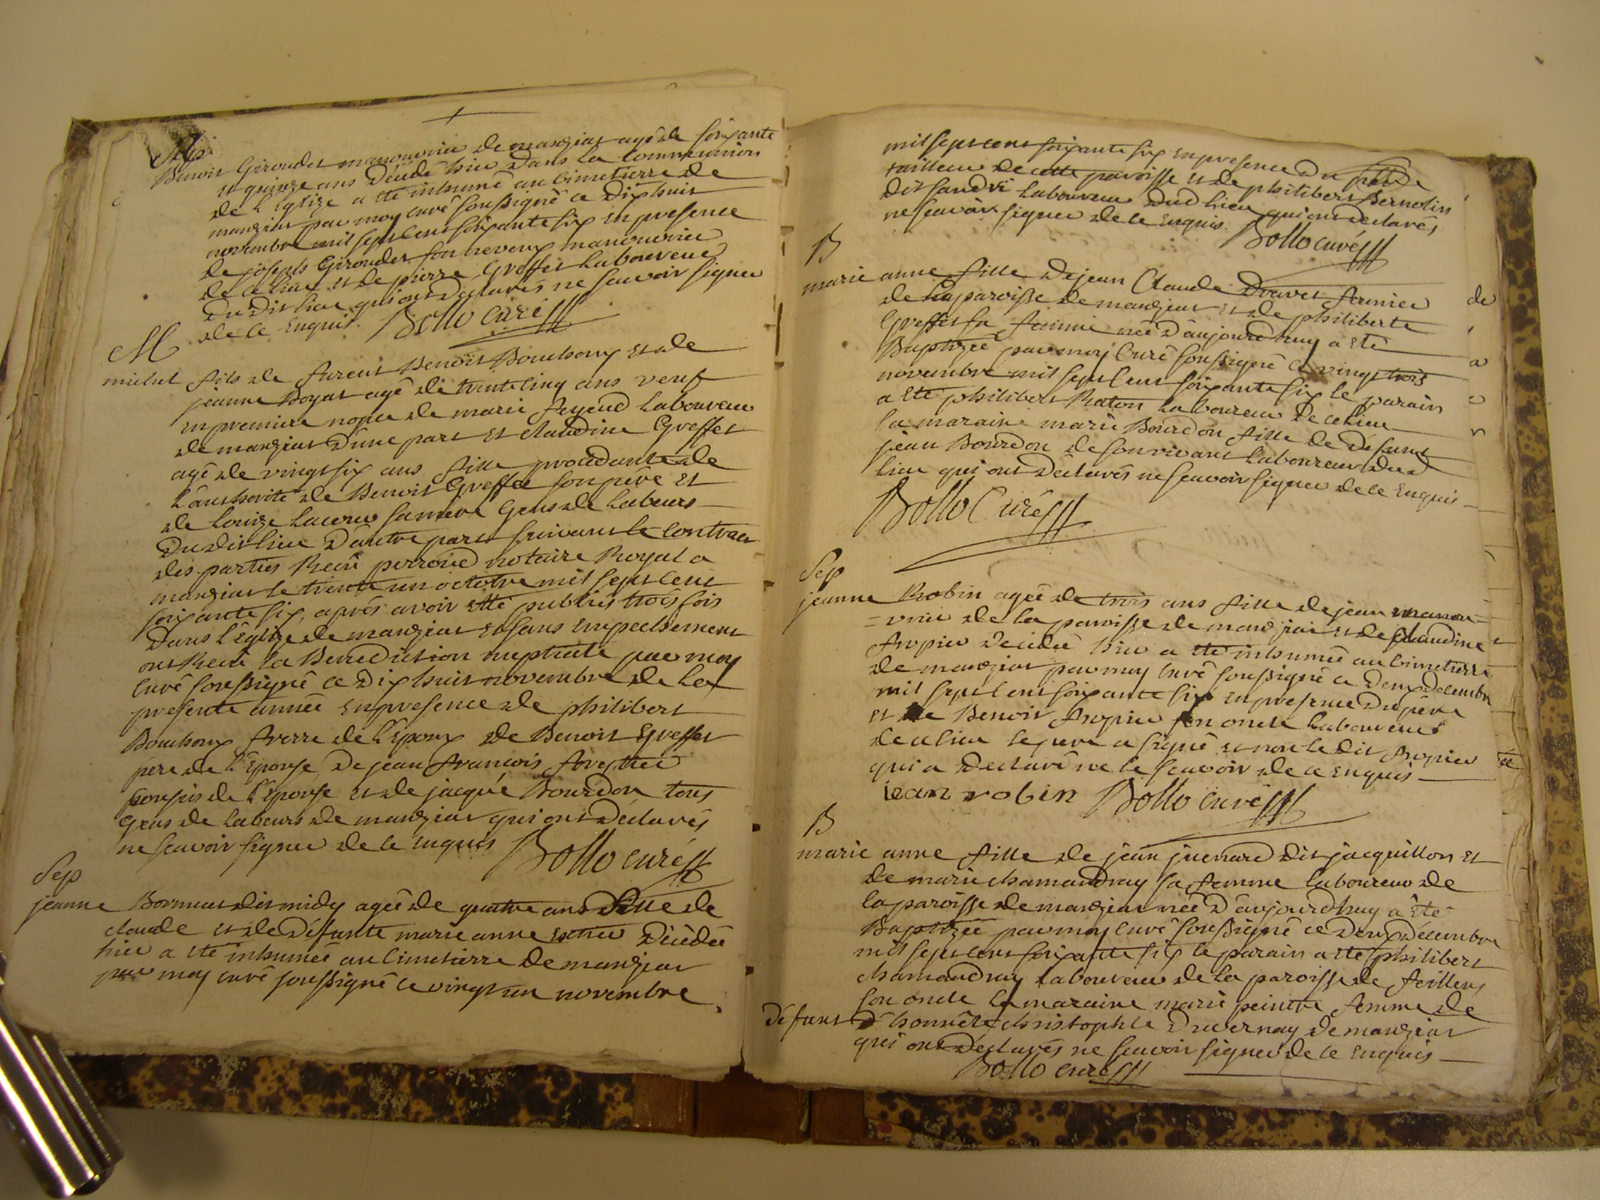 Sep
Benoit Giroudet manouvrier de manziat agé de soixante
et quinze ans décédé hier dans la communion
de l'Eglize a été inhumé au cimetierre de
manziat par moy curé soussigné ce dixhuit
novembre mil sept cent soixante six en presence
de joseph Giroudet son neveux manouvrier
de ce lieu et de pierre Greffet laboureur
du dit lieu qui ont déclarés ne scavoir signer
de ce Enquis. Bollo curé
M
michel fils de furent Benoit Bouchoux et de
jeanne Boyat agé de trente cinq ans veuf
en premiere nopce de marie laboureur
de manziat d'une part et claudine Greffet
agé de vingt six ans fille procédante de
l'authorité de Benoit Greffet son père et
de Louize sa mere Gens de Labeurs
du dit lieu d'autre part suivant le contract
des parties Recû notaire Royal a
manziat le trente un octobre mil sept cent
soixante six, après avoir été publiés trois fois
dans l'Eglize de manziat et sans empechement
ont Recû la Benediction nuptiale par moy
curé soussigné ce dix huit novembre de la
presente année en presence de philibert
Bouchoux frerre de l'époux de Benoit Greffet
pere de l'Epouse, de jean françois
cousin de l'épouse et de jacque Bourdon tous
Gens de Labeurs de manziat qui ont déclarés
ne scavoir signer de ce enquis Bollo curé
Sep
jeanne dit midy agée de quatre ans fille de
claude et de défunte marie anne décédée
hier a été inhumée au cimetierre de manziat
par moy curé soussigné ce vingt un novembre
mil sept cent soixante six en presence du
tailleur de cette paroisse et de philibert Bernolin
dit sandré laboureur dud lieu qui ont declarés
ne scavoir signer de ce enquis. Bollo curé
B
marie anne fille de jean Claude Dravet fermier
de la paroisse de manziat et de philiberte
Greffet sa femme née d'aujourdhuy a été
Baptizée par moy curé soussigné ce vingt trois
novembre mil sept cent soixante six le parain
a été philibert Raton laboureur de ce lieu
la maraine marie Bourdon fille de défunt
jean Bourdon de son vivant laboureur dud
lieu qui ont déclarés ne scavoir signer de ce enquis
Bollo Curé
Sep
jeanne Robin agée de trois ans fille de jean manou=
=vrier de la paroisse de manziat et de claudine
décédée hier a été inhumée au cimetierre
de manziat par moy curé soussigné ce deux décembre
mil sept cent soixante six en presence du père
et de Benoit son oncle laboureur
de ce lieu le pere a signé et non le dit
qui a declaré ne le scavoir de ce enquis
jean robin Bollo curé
B
marie anne fille de jean juenard dit jacquillon et
de marie chamandray sa femme laboureur de
la paroisse de manziat née d'aujourdhuy a été
Baptizée par moy curé soussigné ce deux décembre
mil sept cent soixante six le parain a été philibert
chamandray laboureur de la paroisse de feillens
son oncle la maraine marie peintre femme de
défunt honnête christophle Duvernay de manziat
qui ont declarés ne scavoir signer de ce enquis
Bollo curé